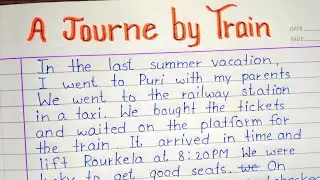 A Journe by Train
DATE
PAGE
In the last summer vacation,
I went to Puri with my parents
We went to the railway station
in a taxi. We bought the tickets
and waited on the platform for
the train. It arrived in time and
lift Rourkela at 8:20PM We were
lucky to get good seats. we On